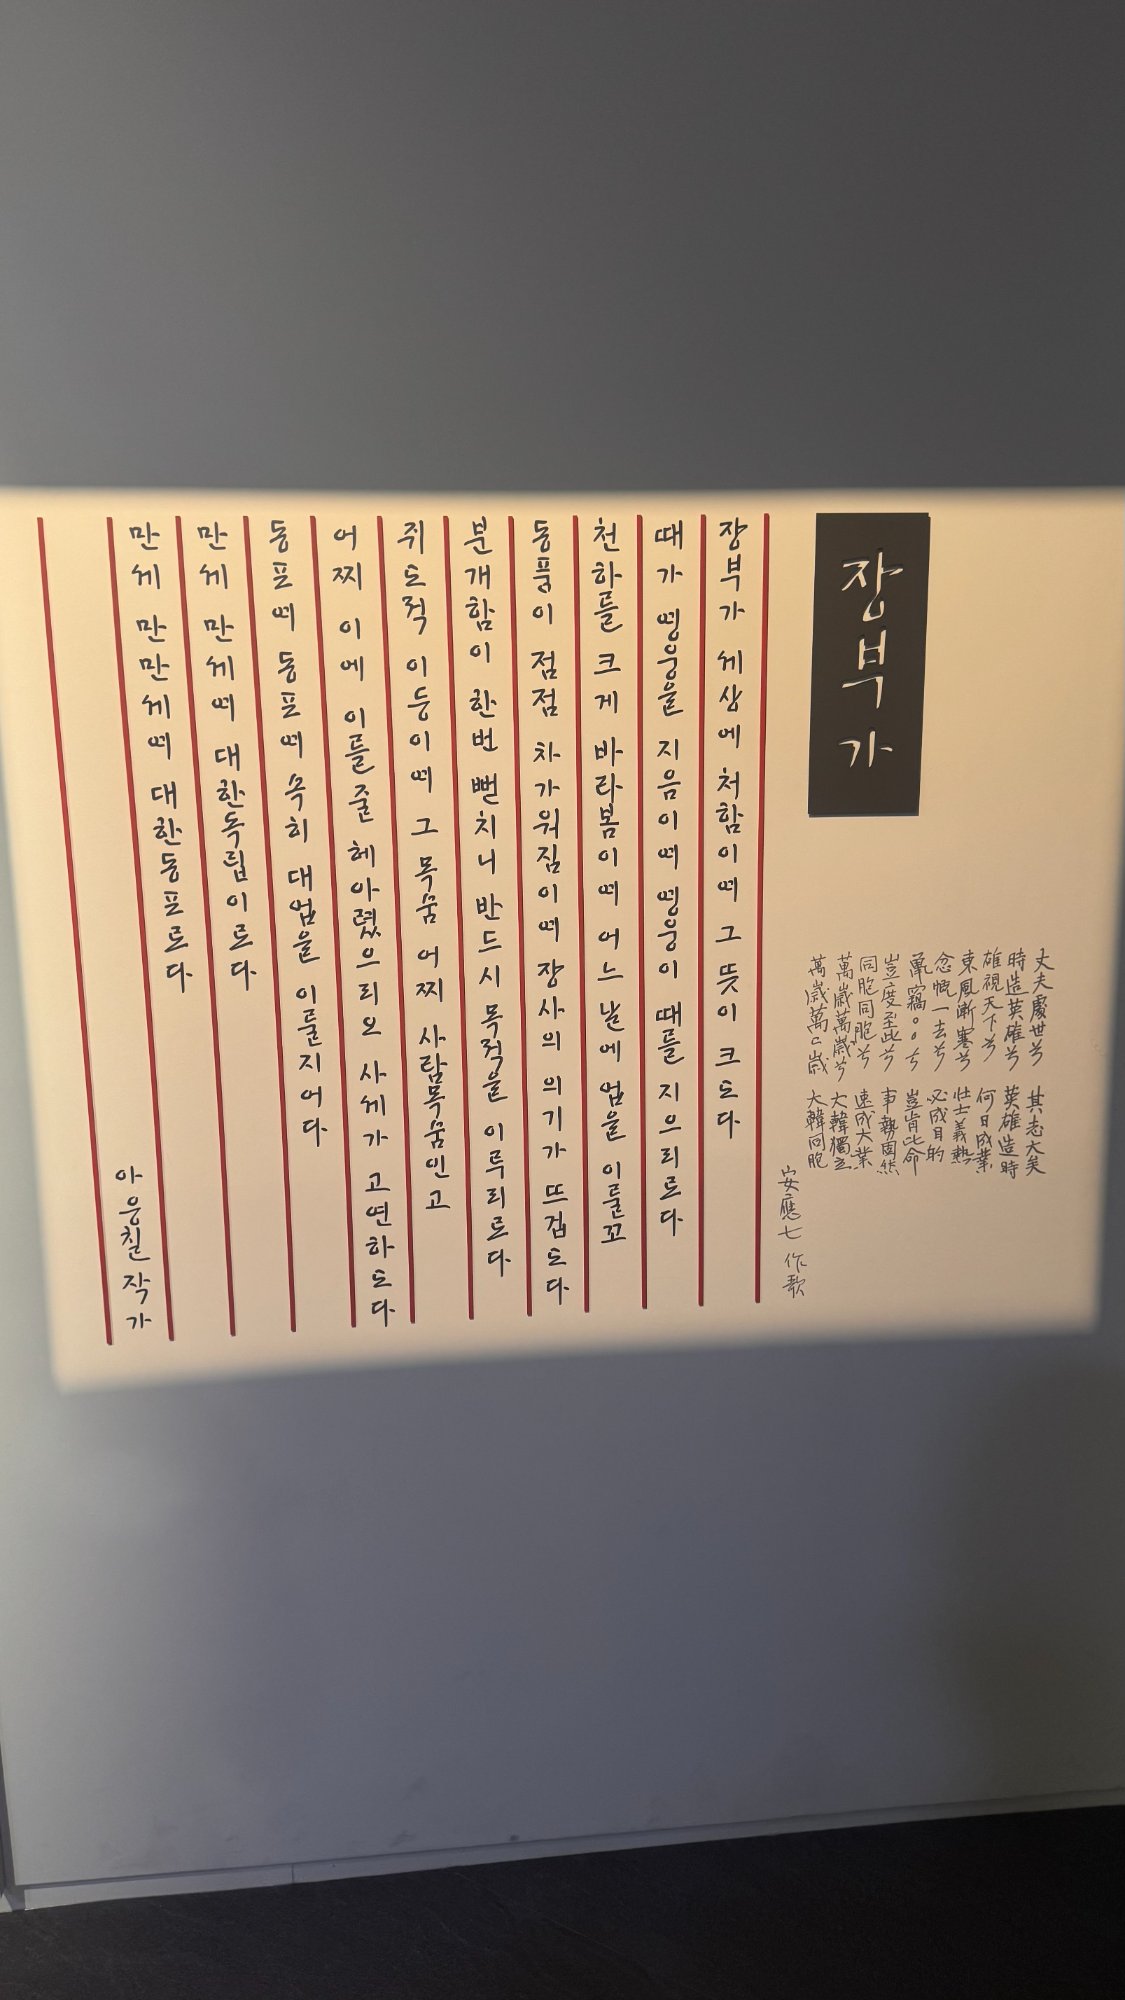 장부가
丈夫處世兮 其志大矣
時造英雄兮 英雄造時
雄視天下兮 何日成業
東風漸寒兮 壯士義熱
念慨一去兮 必成目的
鼠窃○○兮 豈肯此命
豈度至此兮 事勢固然
同胞同胞兮 速成大業
萬歲萬歲兮 大韓獨立
萬歲萬々歲 大韓同胞
安應七 作歌
장부가 세상에 처함이여 그 뜻이 크도다
때가 영웅을 지음이여 영웅이 때를 지으리로다
천하를 크게 바라봄이여 어느 날에 업을 이룰꼬
동풍이 점점 차가워짐이여 장사의 의기가 뜨겁도다
분개함이 한번 뻗치니 반드시 목적을 이루리로다
쥐도적 이등이여 그 목숨 어찌 사람목숨인고
어찌 이에 이를줄 헤아렸으리오 사세가 고연하도다
동포여 동포여 속히 대업을 이룰지어다
만세 만세여 대한독립이로다
만세 만만세여 대한동포로다
아응칠 작가